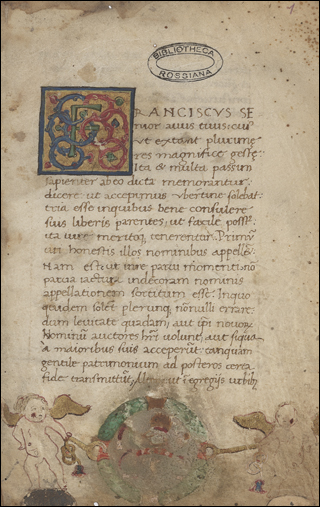 1
BIBLIOTHECA
ROSSIANA
FRANCISCUS SE
nior avus eius: cui
ut extant plurimę
res magnifice gestę
lta & multa passim
sapienter ab eo dicta memorantur
dicere ut accepimus ubertine solebat
tria esse in quibus bene consulere
suis liberis parentes, ut facile possit
Primum
uti honestis illos nominibus appellent
Nam est ut in re parui momenti non
parua iactura indecoram nominis
appellationem sortitum esse. In quo
quidem solent plerunque nonulli errare
dum levitate quadam, aut ipsi novorum
Nominum auctores haberi volunt, aut siqua
a maioribus suis acceperunt tanquam
gentile patrimonium ad posteros cerea
fide transmittunt,